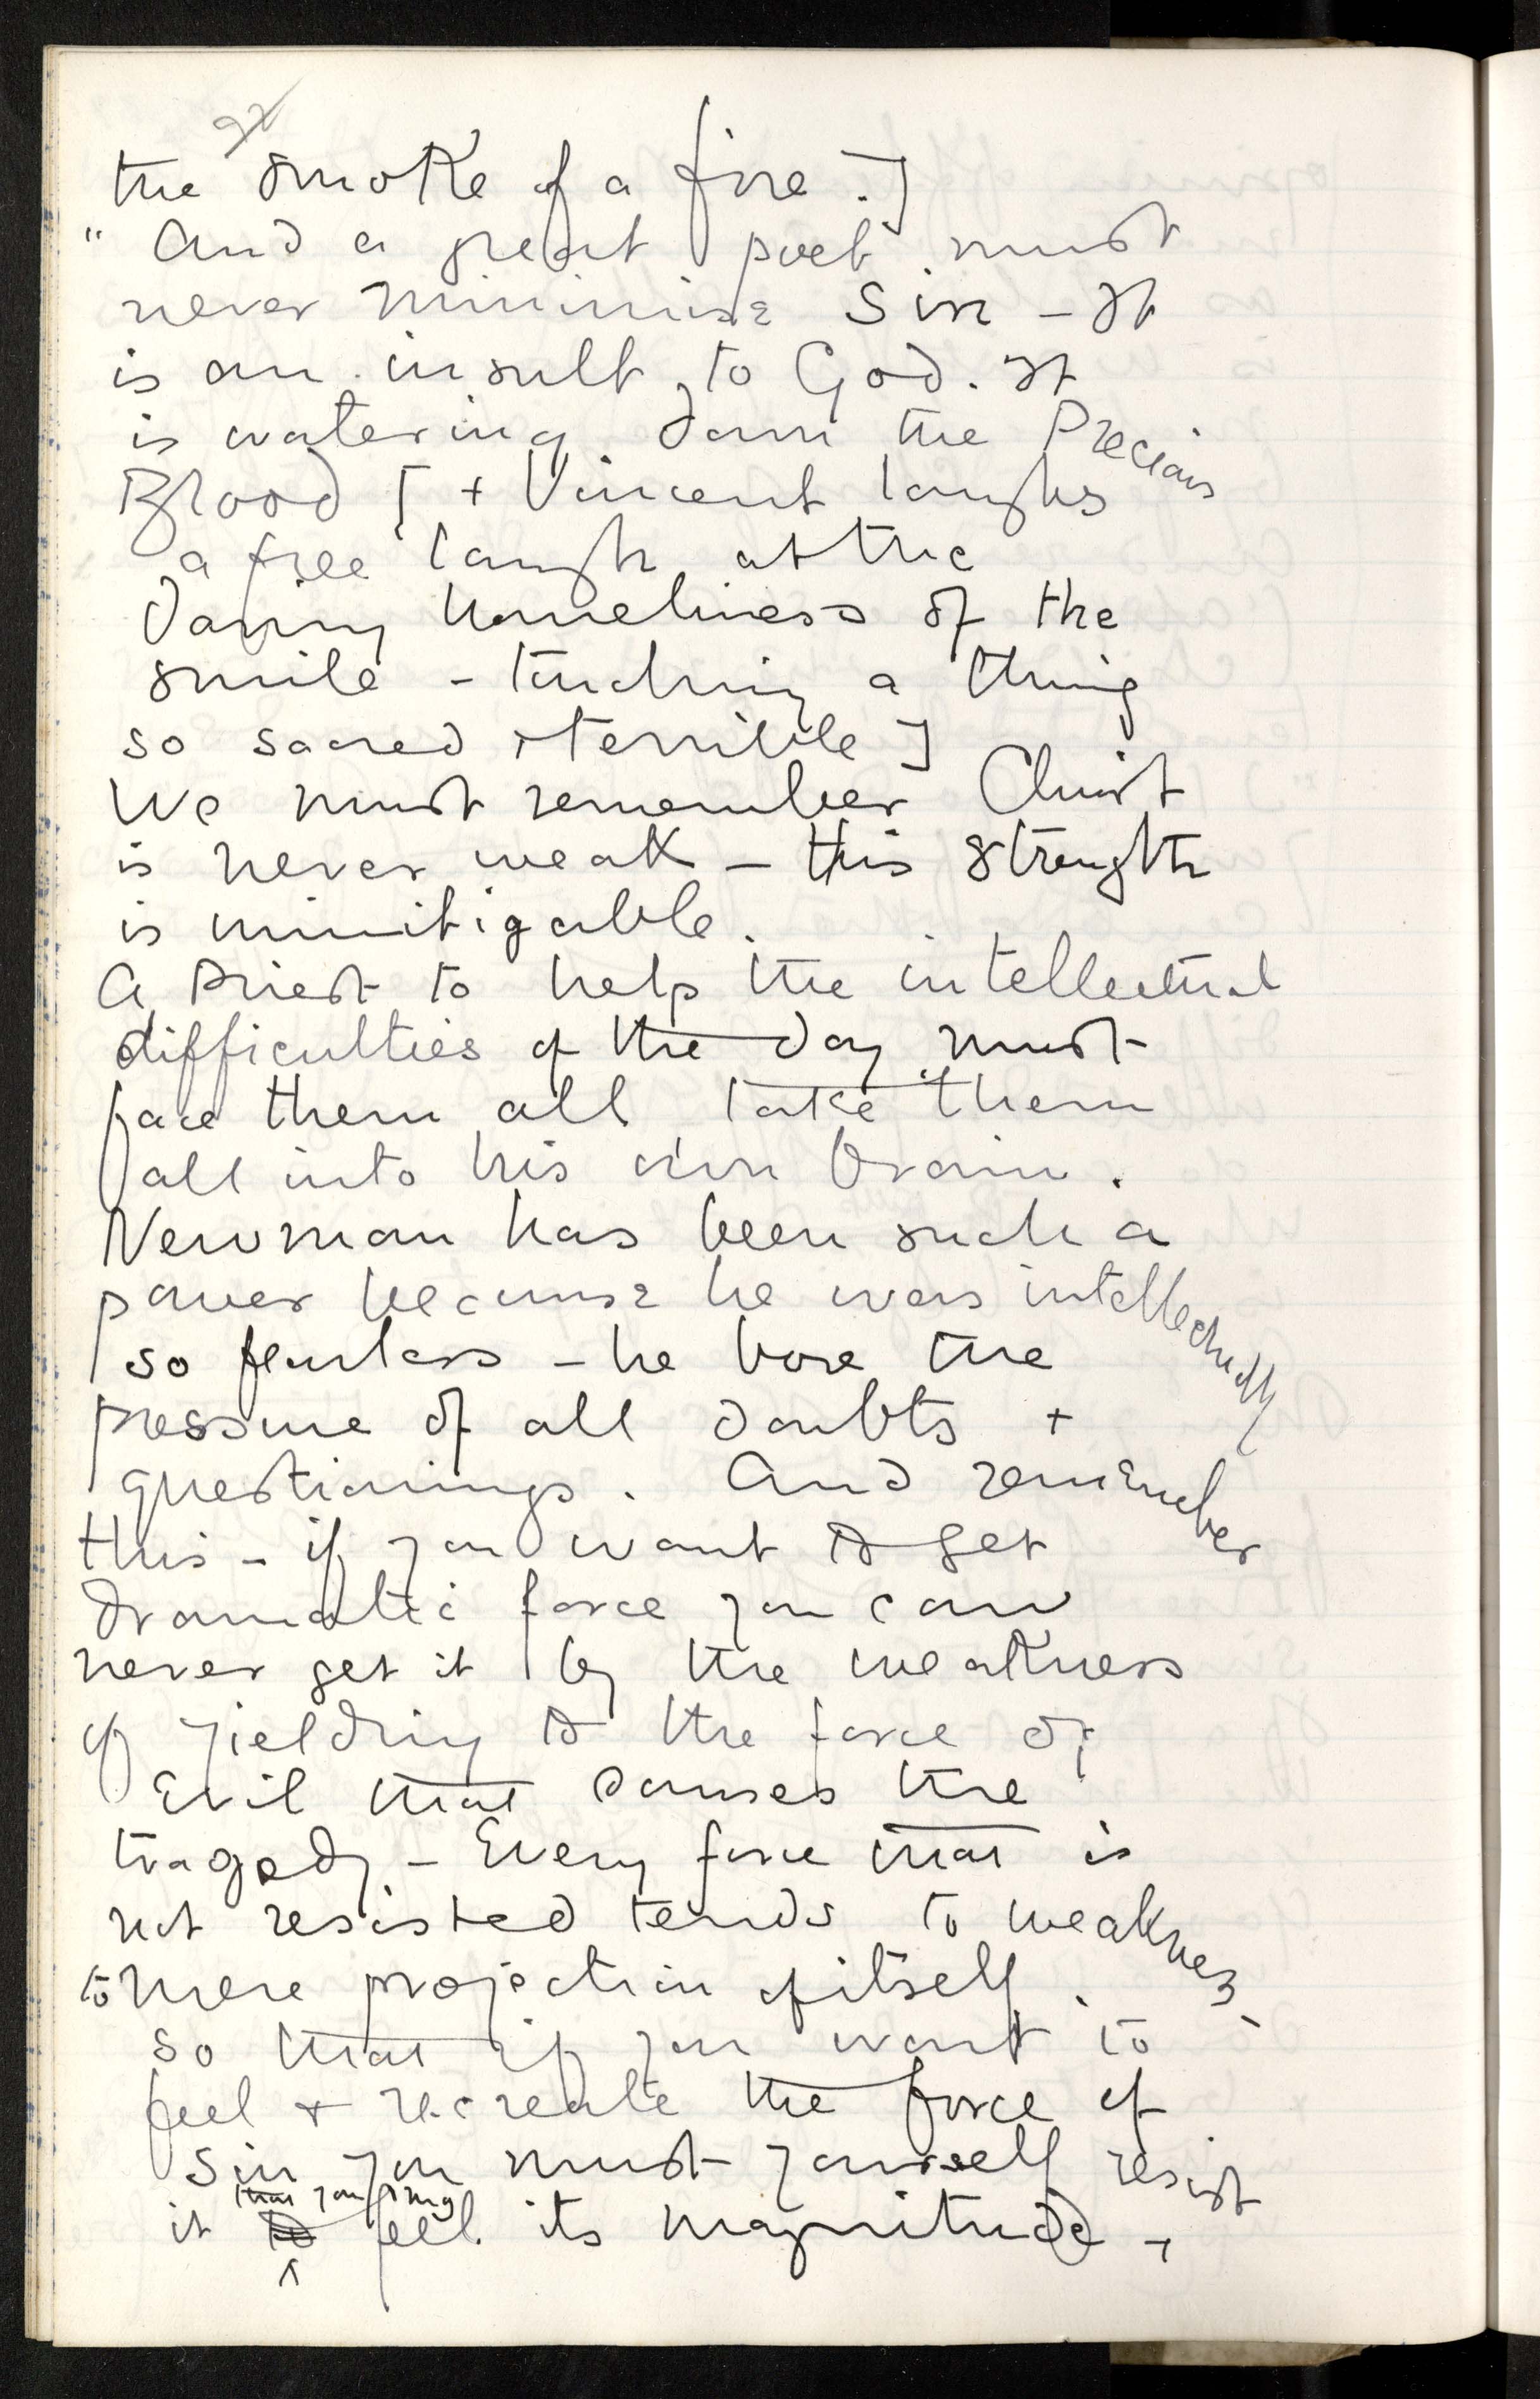 the smoke of a fire.]
" And a great poet must
never minimise Sin – It
is an insult to God. It
is watering down the Precious
Blood [+ Vincent laughs
a free laugh at the
daring homeliness of the
smile – touching a thing
so sacred + terrible]
We must remember Christ
is never weak – His strength
is inimitigable.
A Priest to help the intellectual
difficulties of the day must
face them all take them
all into his own brain.
Newman has been such a
power because he was intellectually
so fearless – he bore the
pressure of all doubts +
questionings. And remember
this – if you want to get
dramatic force you can
never get it by the weakness
of yielding to the force of
Evil that causes the
tragedy – Every force that is
not resisted tends to weakness
to mere projection of itself.
so that if you want to
feel + recreate the force of
Sin you must yourself resist
it that you may feel its magnitude –